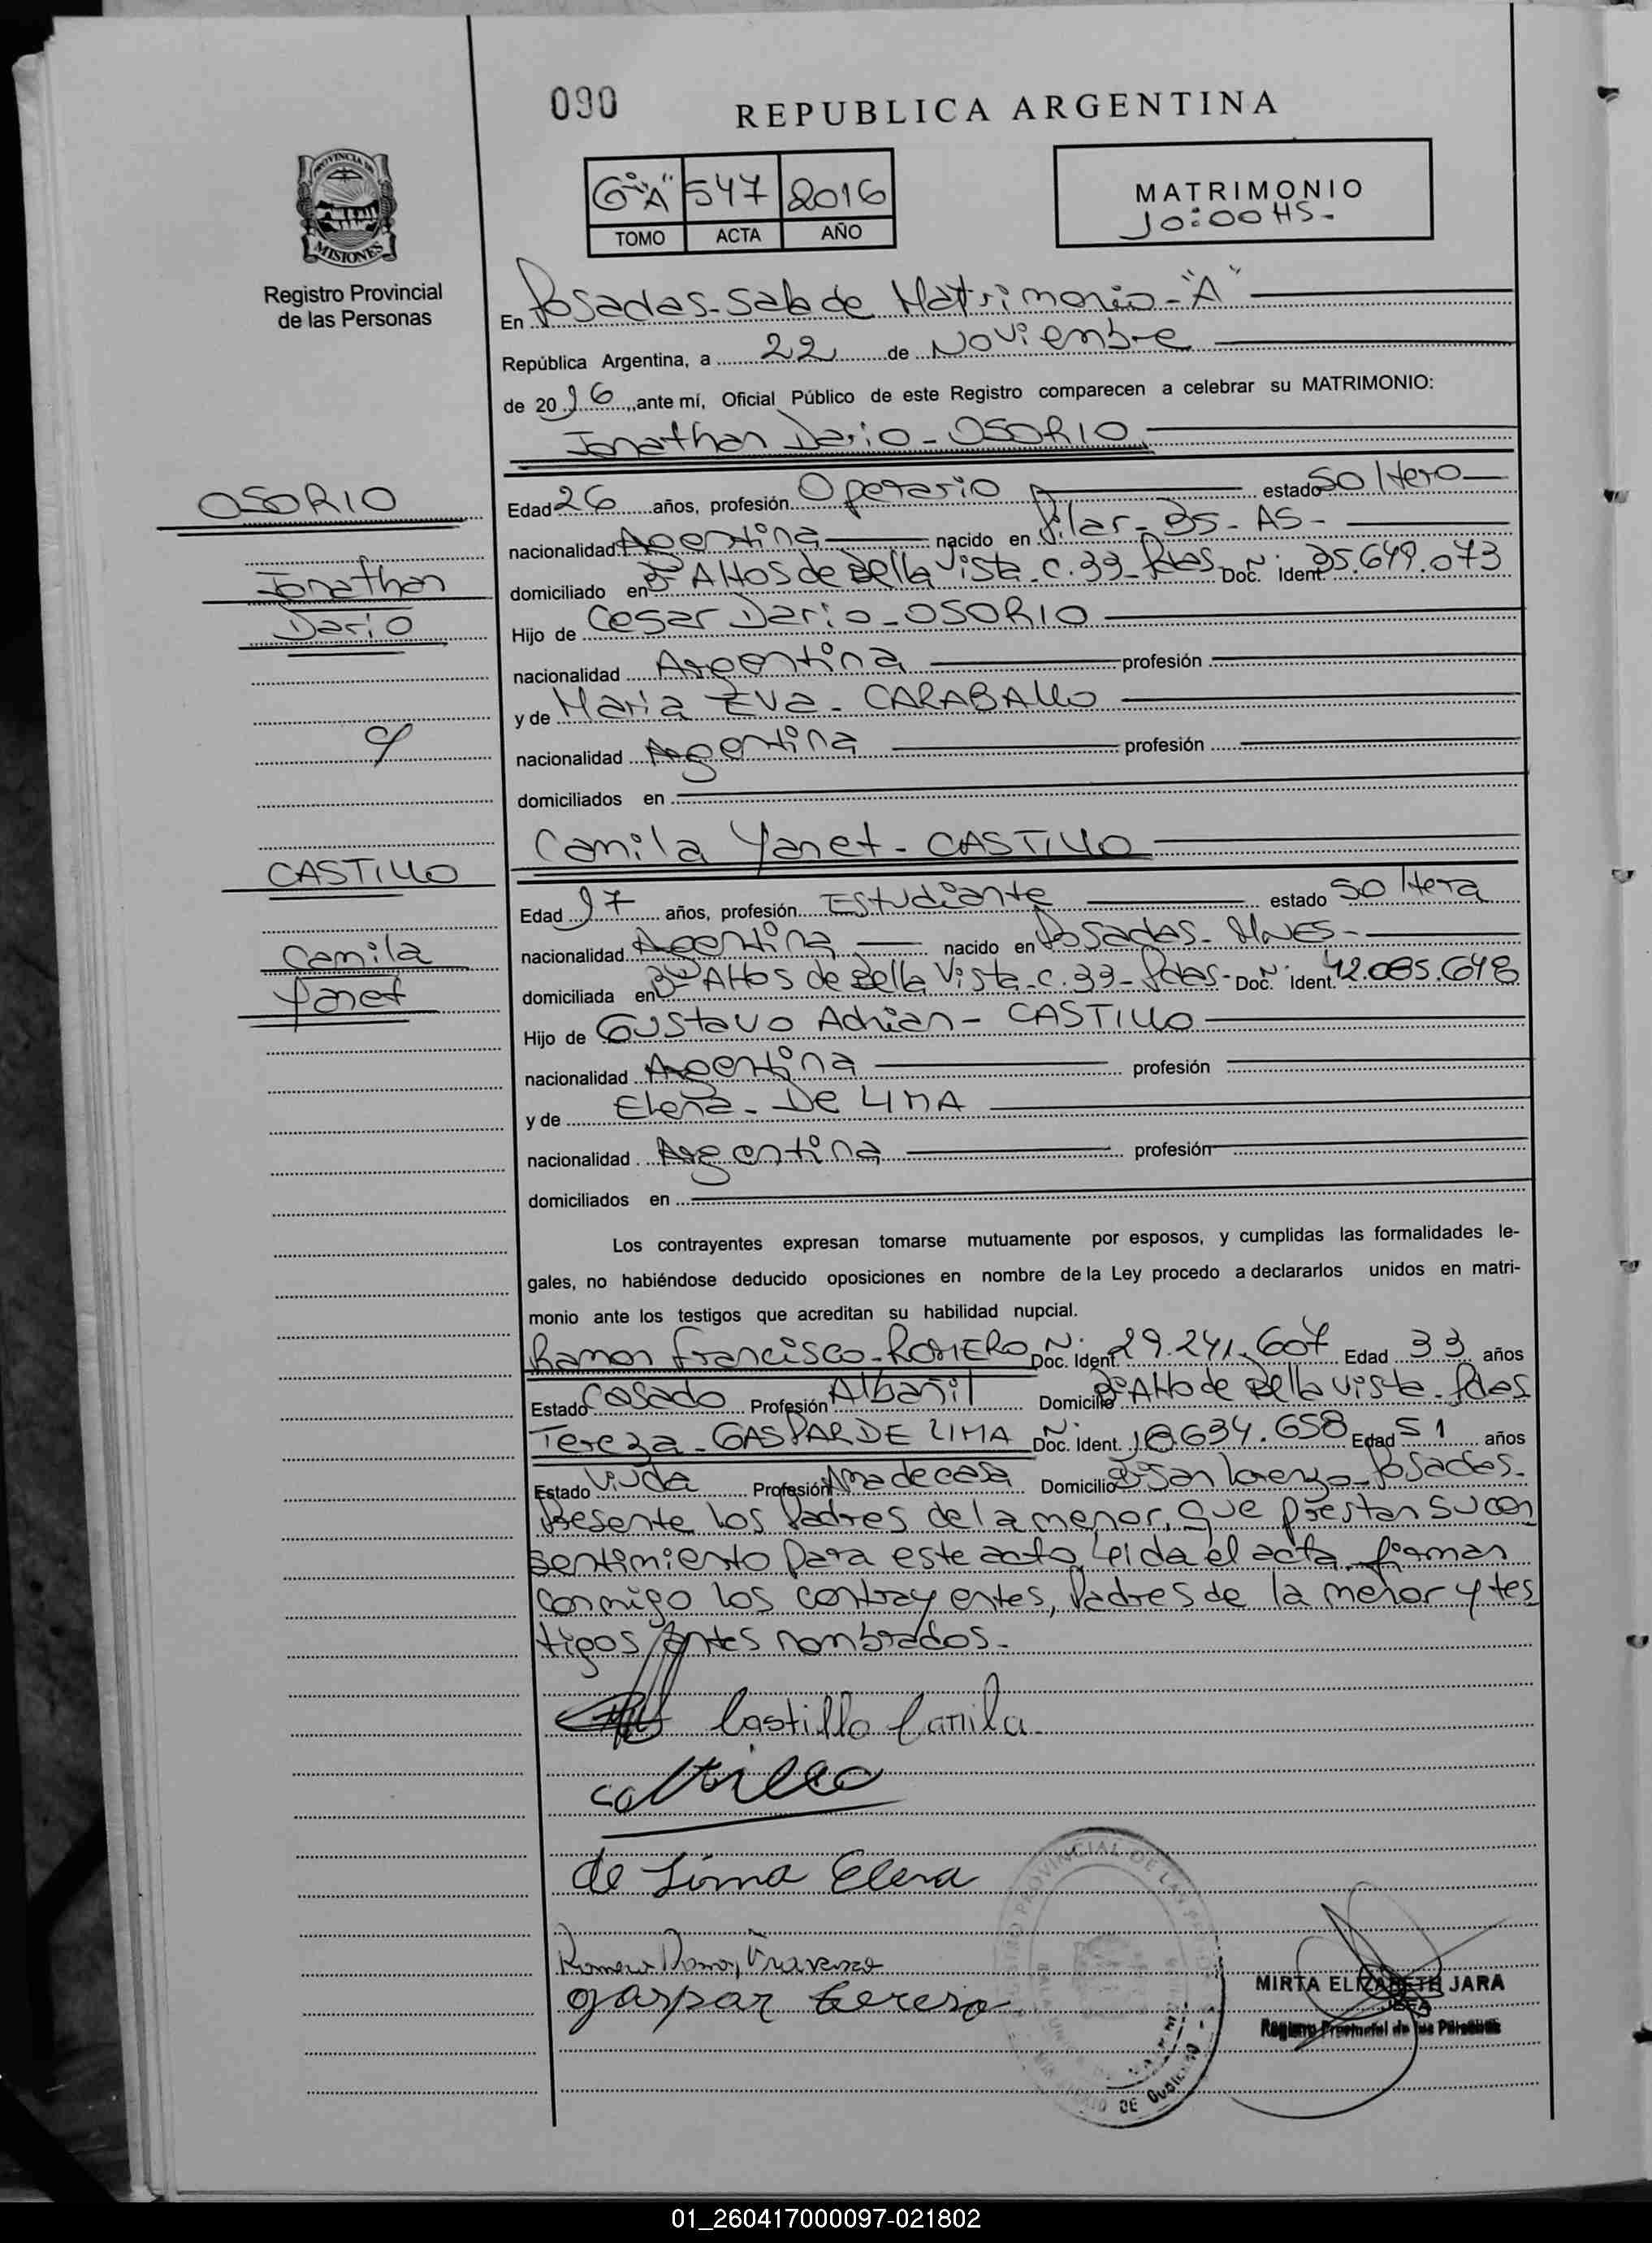 090
REPUBLICA ARGENTINA
6º "A" 547 2016
TOMO ACTA AÑO
MATRIMONIO
10:00 HS-
PROVINCIA DE
MISIONES
Registro Provincial
de las Personas
En Posadas-Sala de Matrimonio-"A"
República Argentina, a 22 de Noviembre
de 2016, ante mí, Oficial Público de este Registro comparecen a celebrar su MATRIMONIO:
Jonathan Dario-OSORIO
OSORIO
Jonathan
Dario
Edad 26 años, profesión Operario estado Soltero
nacionalidad Argentina nacido en Pilar-Bs-AS-
domiciliado en Altos de Bella Vista-C.33-Pdas. Doc. Nº Ident. 35.649.073
Hijo de Cesar Dario-OSORIO
nacionalidad Argentina profesión
y de Maria Eva-CARABALLO
nacionalidad Argentina profesión
domiciliados en
c/
Camila Yanet-CASTILLO
CASTILLO
Camila
Yanet
Edad 17 años, profesión Estudiante estado Soltera
nacionalidad Argentina nacido en Posadas-Mnes-
domiciliada en Altos de Bella Vista-C.33-Pdas- Doc. Nº Ident. 42.085.648
Hijo de Gustavo Adrian-CASTILLO
nacionalidad Argentina profesión
y de Elena-De LIMA
nacionalidad Argentina profesión
domiciliados en
Los contrayentes expresan tomarse mutuamente por esposos, y cumplidas las formalidades le-
gales, no habiéndose deducido oposiciones en nombre de la Ley procedo a declararlos unidos en matri-
monio ante los testigos que acreditan su habilidad nupcial.
Ramon Francisco-ROMERO Nº Doc. Ident. 29.241.607 Edad 33 años
Estado Casado Profesión Albañil Domicilio Alto de Bella Vista-Pdas
Tereza-GASPAR DE LIMA Nº Doc. Ident. 18.634.658 Edad 51 años
Estado Viuda Profesión Ama de casa Domicilio Bº San Lorenzo-Posadas-
Presente los Padres de la menor, que prestan su con
sentimiento para este acto, Leida el acta, firman
conmigo los contrayentes, Padres de la menor y tes
tigos antes nombrados-
Castillo Camila
Castillo
de Lima Elena
Romero Ramon
gaspar teresa
MIRTA ELIZABETH JARA
JEFA
Registro Provincial de las Personas
01_260417000097-021802